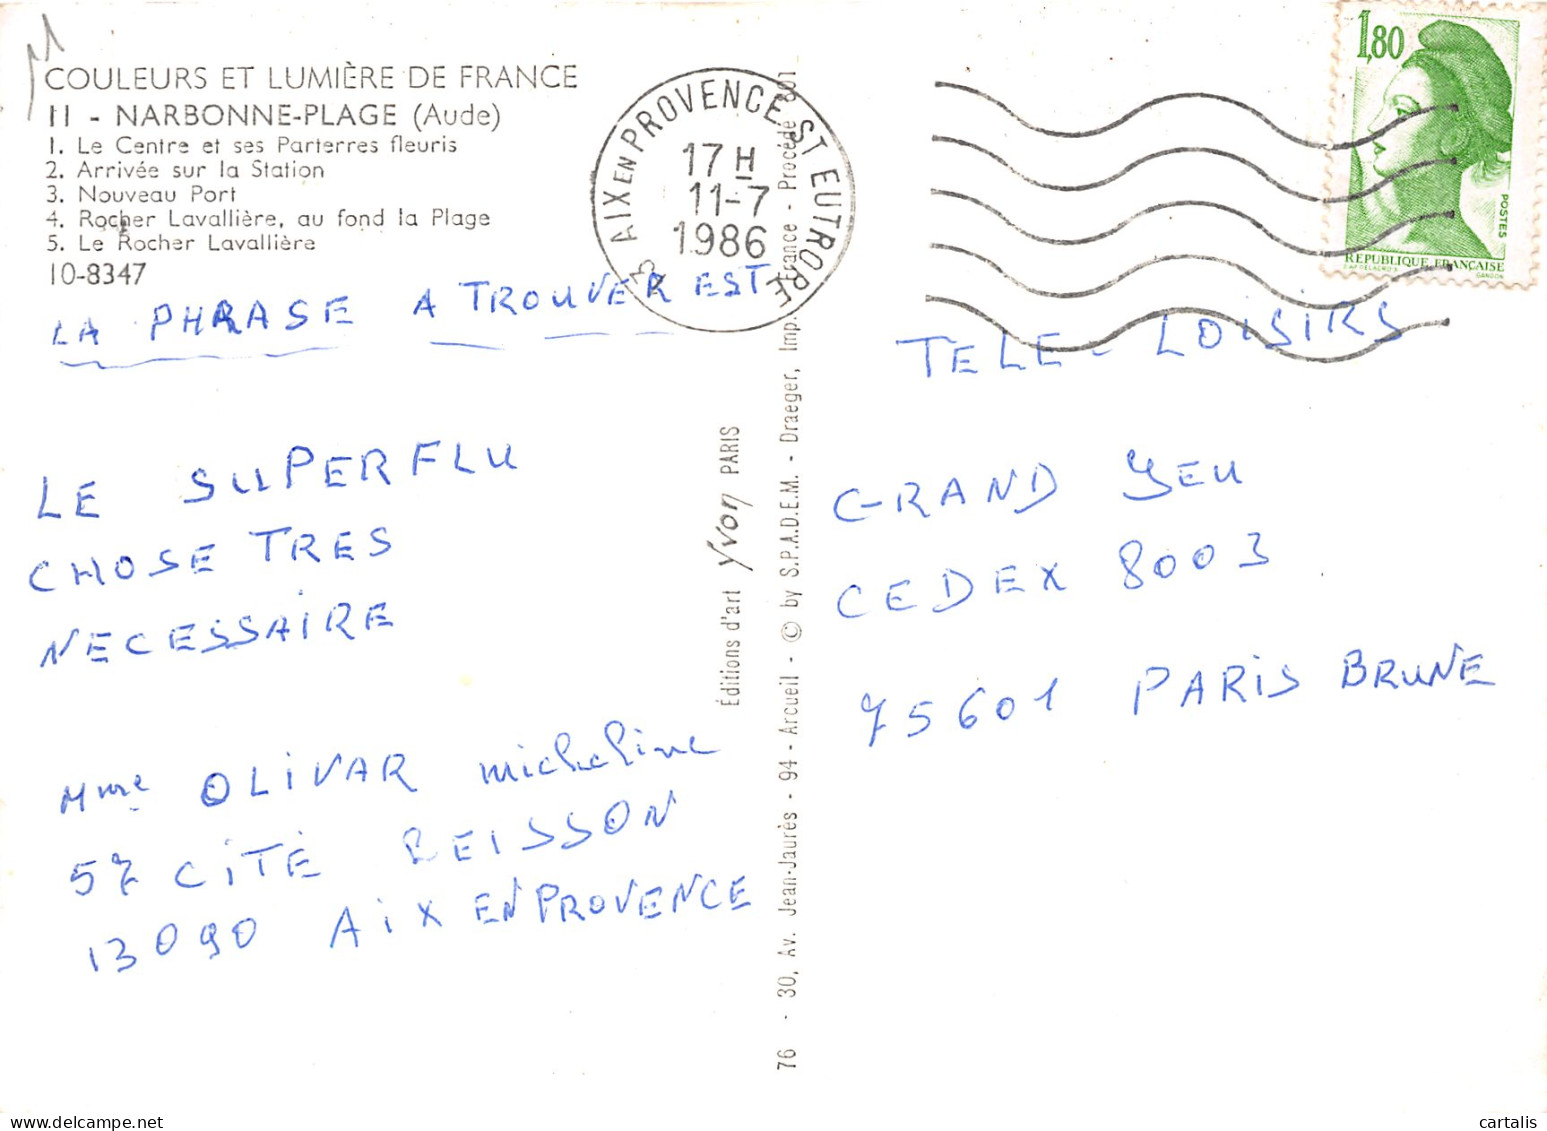 COULEURS ET LUMIÈRE DE FRANCE
11 - NARBONNE-PLAGE (Aude)
1. Le Centre et ses Parterres fleuris
2. Arrivée sur la Station
3. Nouveau Port
4. Rocher Lavallière, au fond la Plage
5. Le Rocher Lavallière
10-8347
LA PHRASE A TROUVER EST
LE SUPERFLU
CHOSE TRES
NECESSAIRE
Mme OLIVAR micheline
57 CITÉ BEISSON
13090 AIX EN PROVENCE
13 AIX EN PROVENCE ST EUTROPE
17 H
11-7
1986
Éditions d'art Yvon PARIS
76 - 30, Av. Jean-Jaurès - 94 - Arcueil - © by S.P.A.D.E.M. - Draeger, Imp. France - Procédé 301
1,80
POSTES
REPUBLIQUE FRANÇAISE
GANDON
TELE-LOISIRS
GRAND JEU
CEDEX 8003
75601 PARIS BRUNE
cartalis